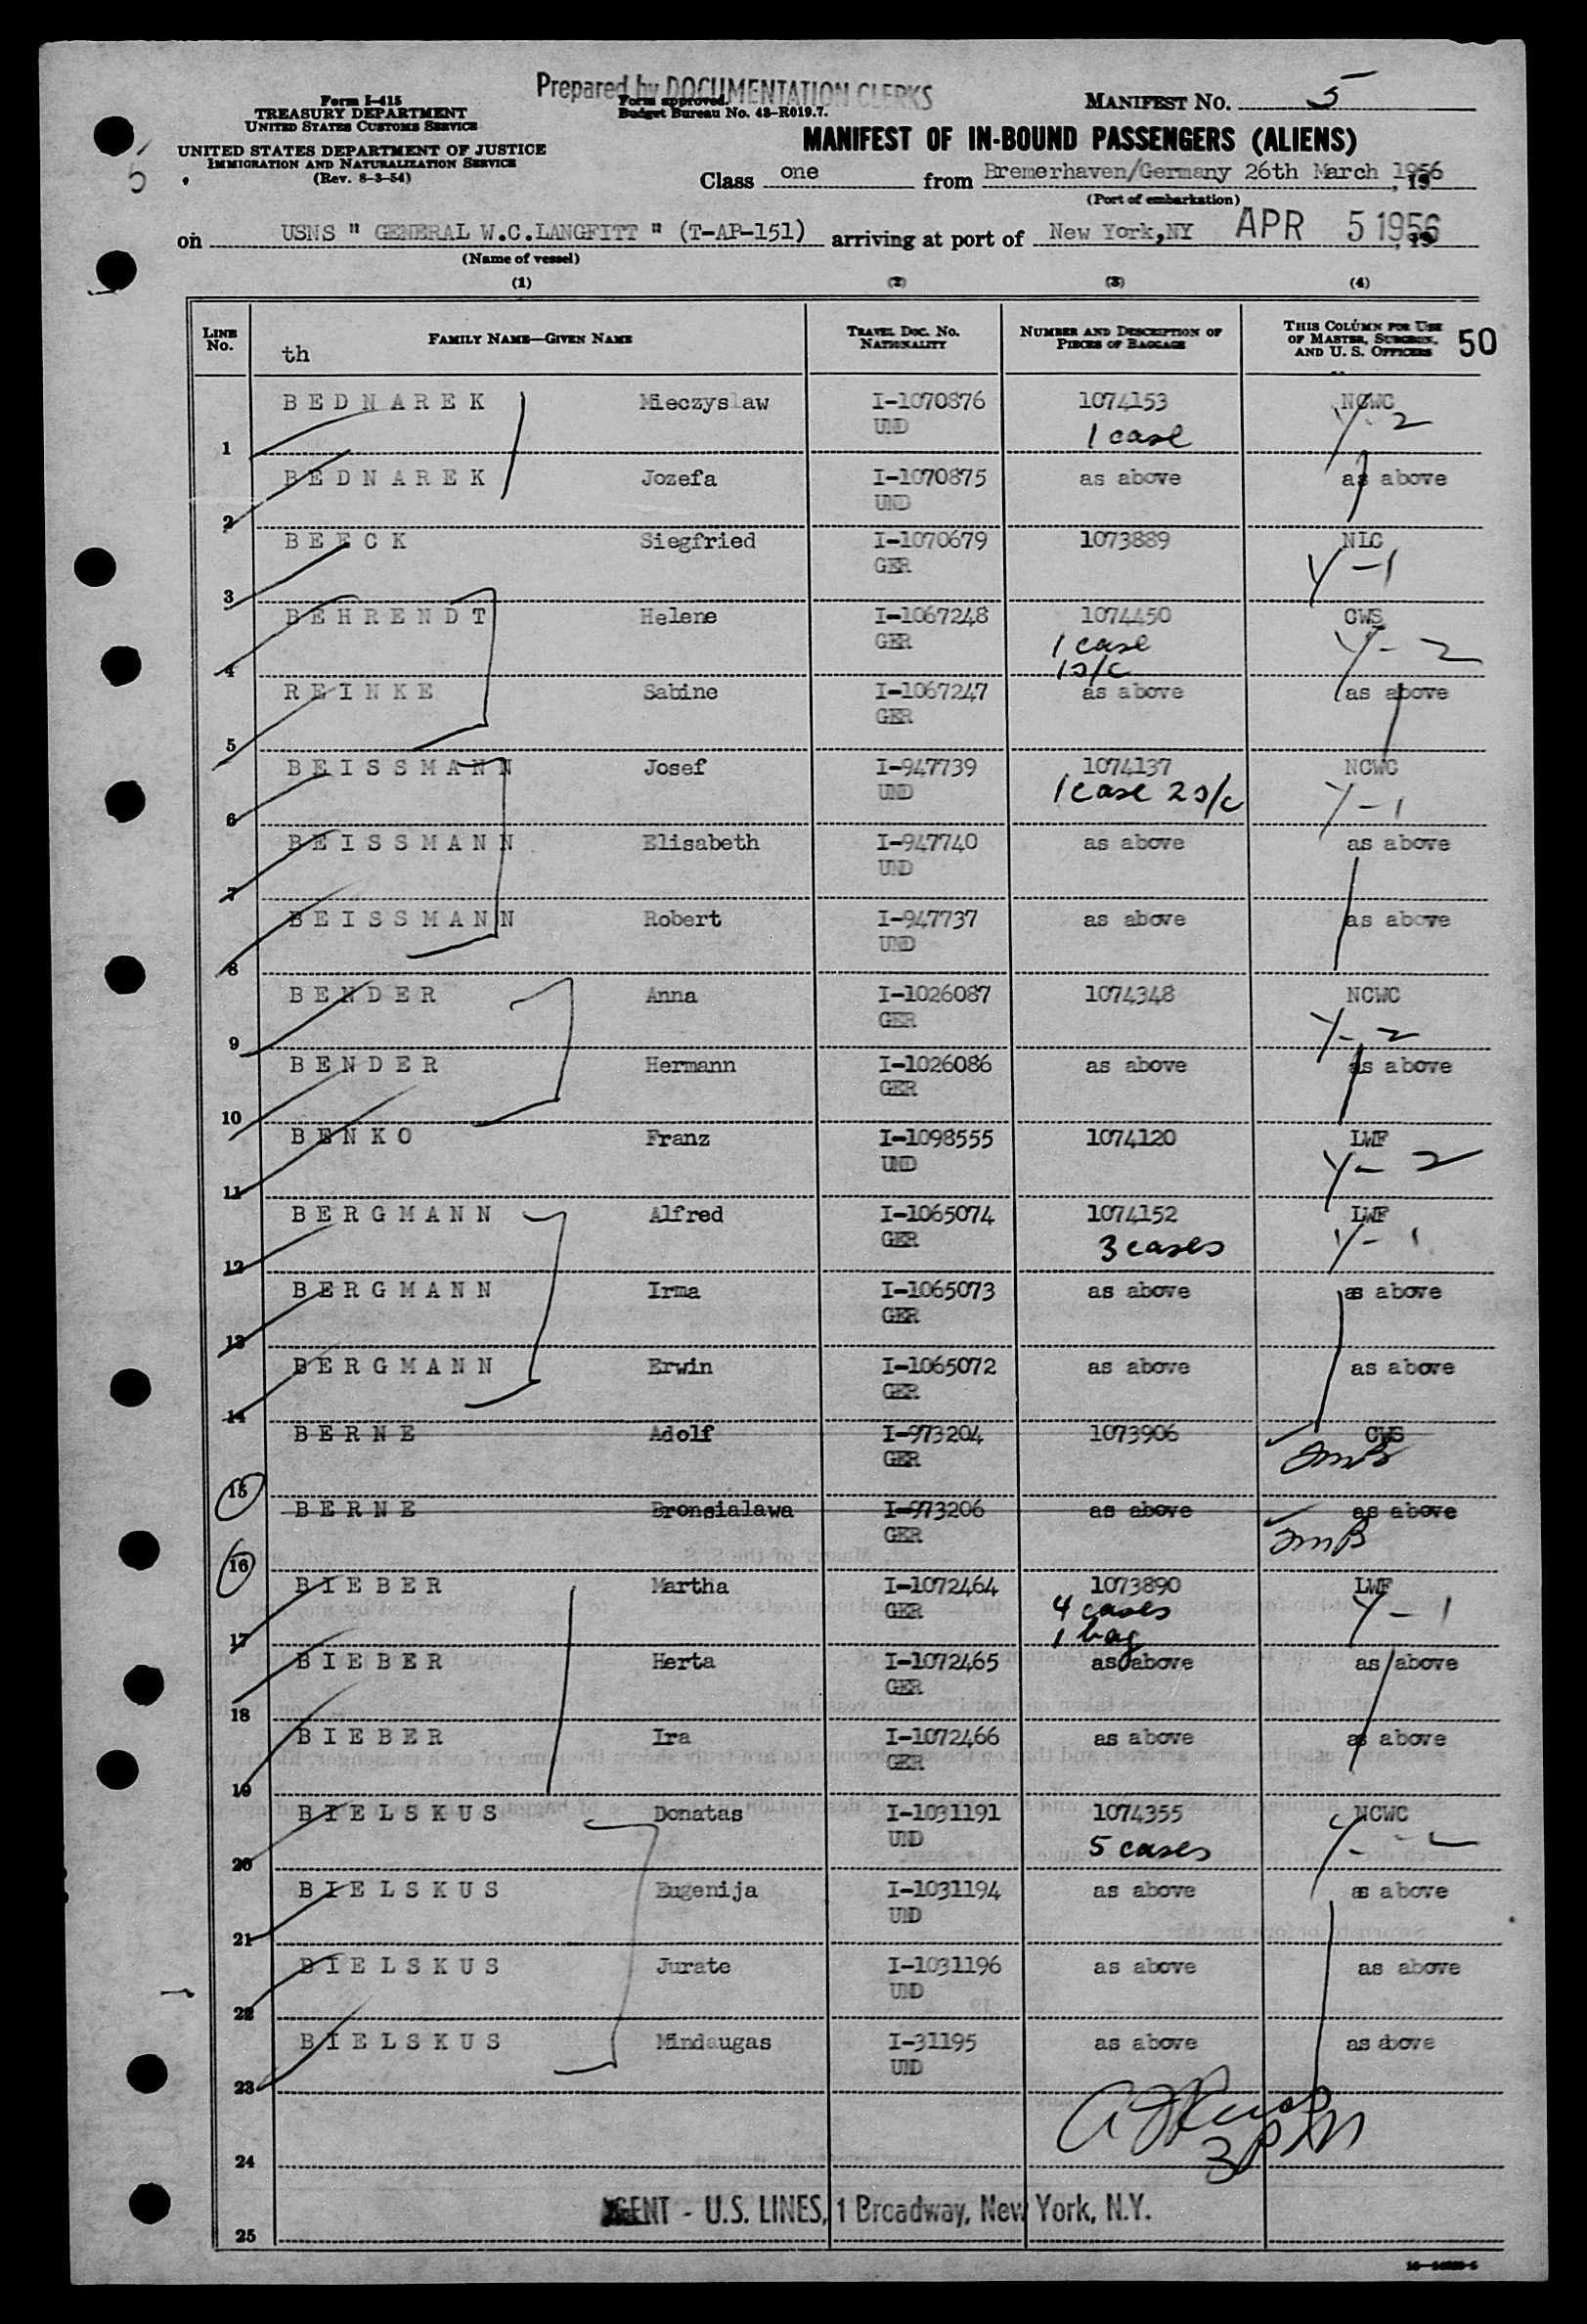 Prepared by DOCUMENTATION CLERKS
Form I-415
TREASURY DEPARTMENT
UNITED STATES CUSTOMS SERVICE
UNITED STATES DEPARTMENT OF JUSTICE
IMMIGRATION AND NATURALIZATION SERVICE
(Rev. 8-3-54)
Form approved.
Budget Bureau No. 43-R019.7.
MANIFEST NO. 5
MANIFEST OF IN-BOUND PASSENGERS (ALIENS)
5
Class one from Bremerhaven/Germany 26th March 1956
(Port of embarkation)
on USNS " GENERAL W.C.LANGFITT " (T-AP-151) arriving at port of New York,NY APR 5 1956
(Name of vessel)
(1) (2) (3) (4)
LINE No. FAMILY NAME—GIVEN NAME TRAVEL DOC. NO. NATIONALITY NUMBER AND DESCRIPTION OF PIECES OF BAGGAGE THIS COLUMN FOR USE OF MASTER, SURGEON, AND U. S. OFFICERS 50
th
BEDNAREK Mieczyslaw I-1070876 1074153 NCWC
1 UND 1 case Y-2
BEDNAREK Jozefa I-1070875 as above as above
2 UND
BEECK Siegfried I-1070679 1073889 NLC
3 GER Y-1
BEHRENDT Helene I-1067248 1074450 CWS
4 GER 1 case Y-2
1 s/c
REINKE Sabine I-1067247 as above as above
5 GER
BEISSMANN Josef I-947739 1074137 NCWC
6 UND 1 case 2 s/c Y-1
BEISSMANN Elisabeth I-947740 as above as above
7 UND
BEISSMANN Robert I-947737 as above as above
8 UND
BENDER Anna I-1026087 1074348 NCWC
9 GER Y-2
BENDER Hermann I-1026086 as above as above
10 GER
BENKO Franz I-1098555 1074120 LWF
11 UND Y-2
BERGMANN Alfred I-1065074 1074152 LWF
12 GER 3 cases Y-1
BERGMANN Irma I-1065073 as above as above
13 GER
BERGMANN Erwin I-1065072 as above as above
14 GER
BERNE Adolf I-973204 1073906 CWS
15 GER
BERNE Bronsialawa I-973206 as above as above
16 GER
BIEBER Martha I-1072464 1073890 LWF
17 GER 4 cases Y-1
1 bag
BIEBER Herta I-1072465 as above as above
18 GER
BIEBER Ira I-1072466 as above as above
19 GER
BIELSKUS Donatas I-1031191 1074355 NCWC
20 UND 5 cases Y-2
BIELSKUS Eugenija I-1031194 as above as above
21 UND
BIELSKUS Jurate I-1031196 as above as above
22 UND
BIELSKUS Mindaugas I-31195 as above as above
23 UND
24
AGENT - U.S. LINES, 1 Broadway, New York, N.Y.
25